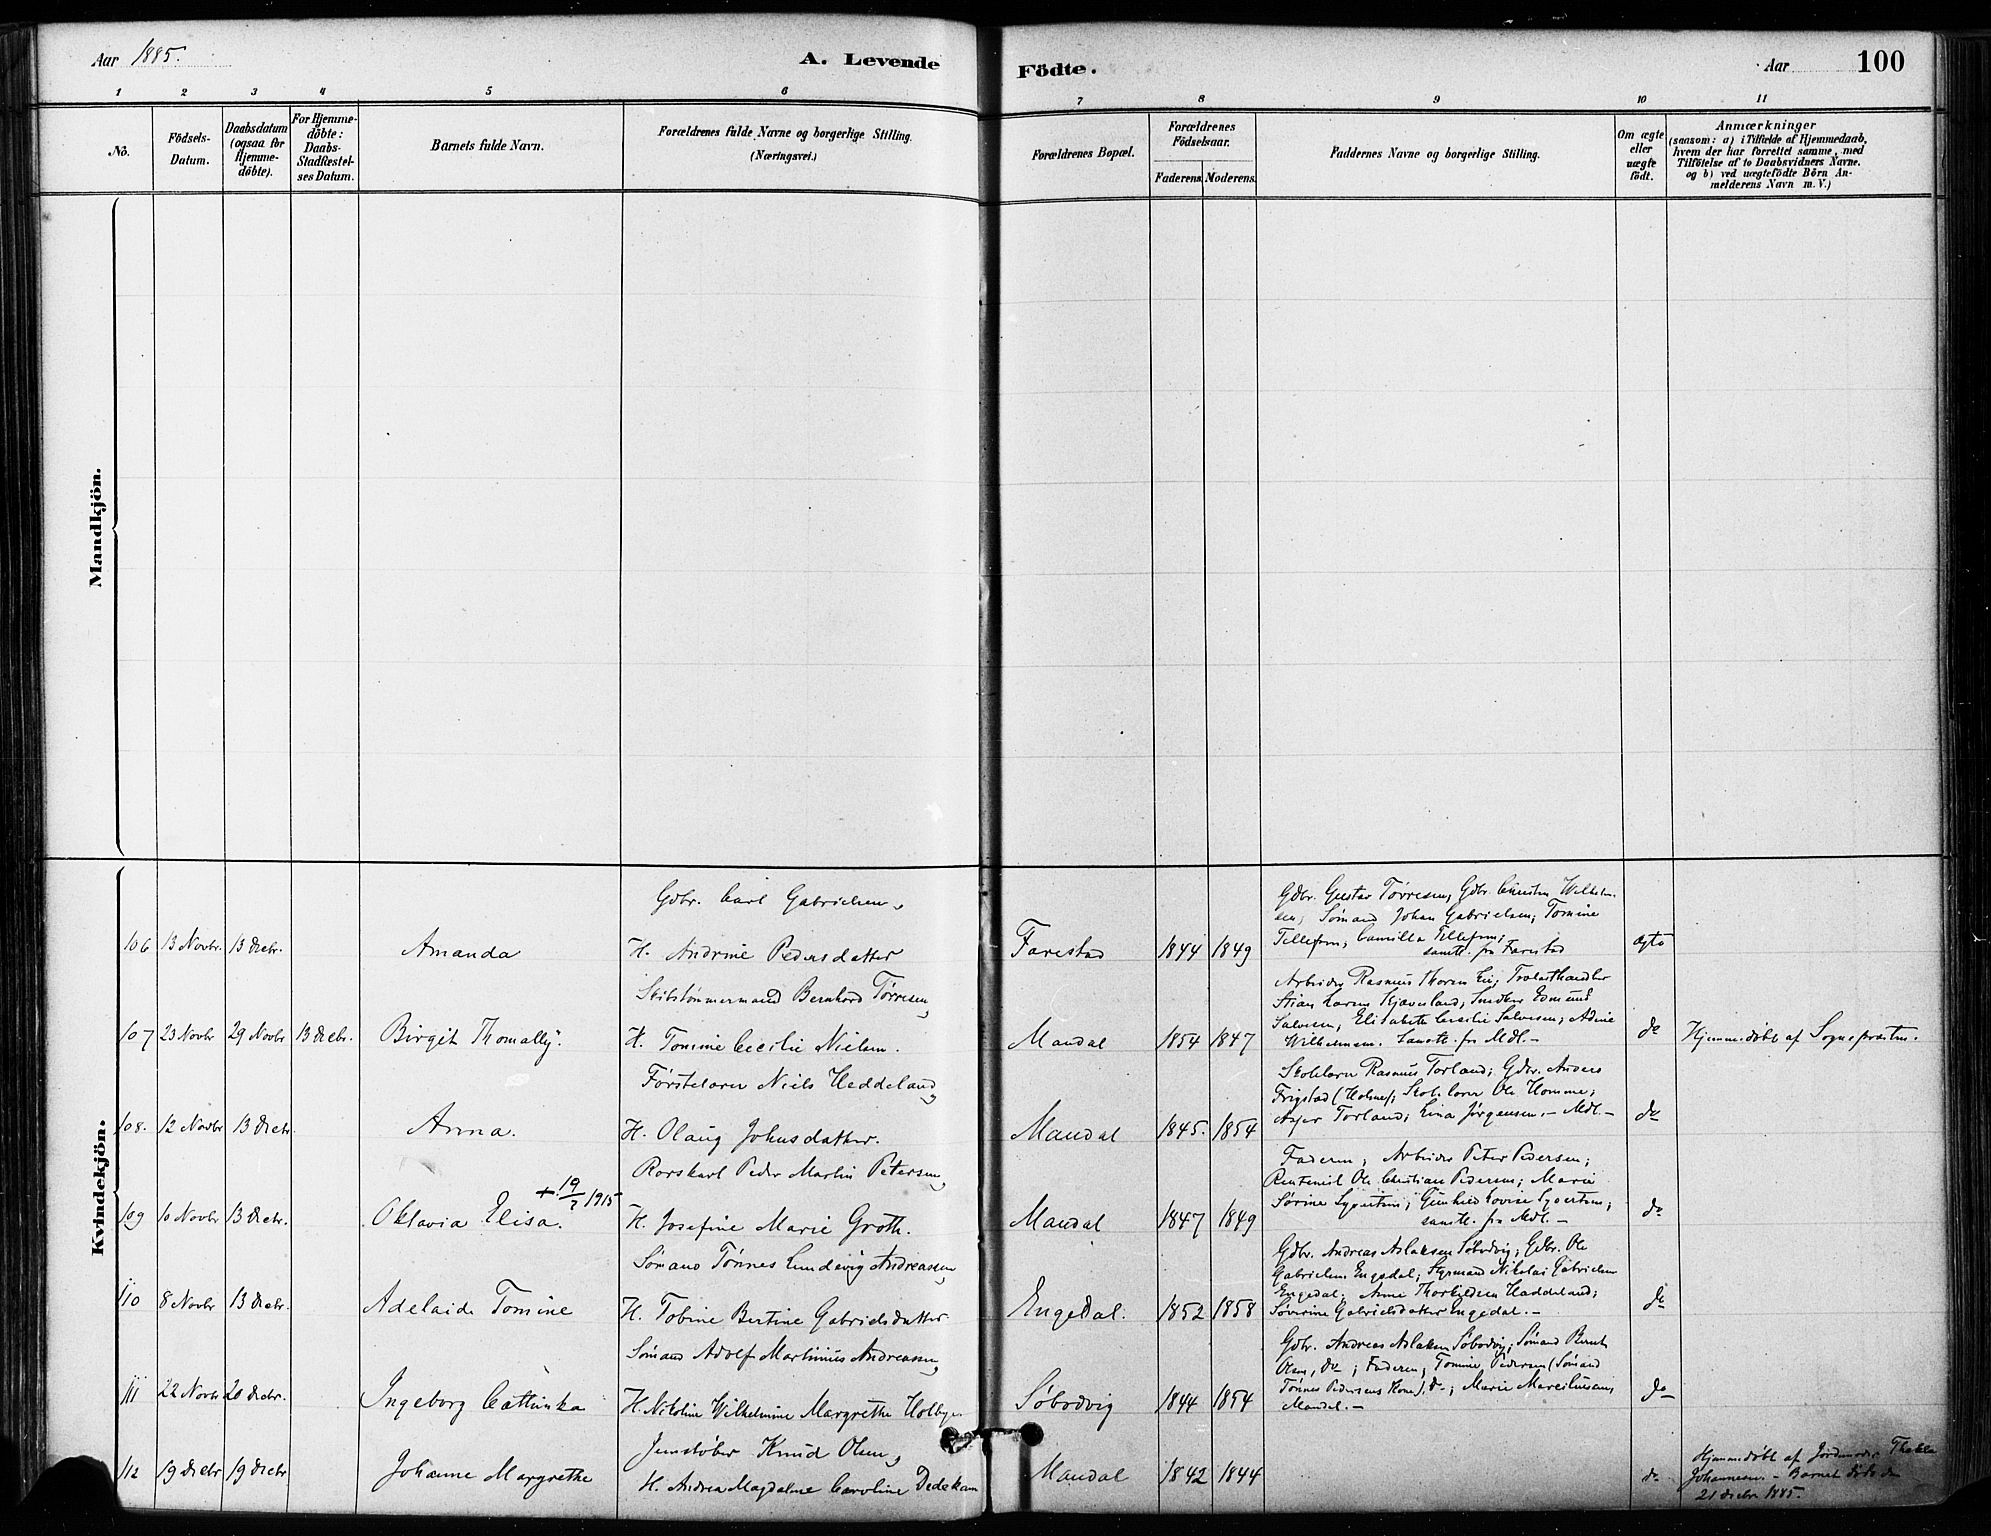 Aar 1885.
A. Levende
Födte.
Aar
100
1 2 3 4 5 6 7 8 9 10 11
No.
Födsels-Datum.
Daabsdatum (ogsaa for Hjemme-döbte).
For Hjemme-döbte: Daabs-Stadfæstel-ses Datum.
Barnets fulde Navn.
Forældrenes fulde Navne og borgerlige Stilling.
(Næringsvei.)
Forældrenes Bopæl.
Forældrenes Födselsaar.
Faderens. Moderens.
Faddernes Navne og borgerlige Stilling.
Om ægte eller uægte födt.
Anmærkninger
(saasom: a) i Tilfælde af Hjemmedaab,
hvem der har forrettet samme, med
Tilföielse af to Daabsvidners Navne.
og b) ved uægtefödte Börn An-
melderens Navn m. V.)
Mandkjön.
Kvindekjön.
Gdbr. Carl Gabrielsen,
Gdbr. Gustav Tørresen, Gdbr. Christen Wilhelm-
sen, Sømand Johan Gabrielsen; Tomine
106 13 Novbr. 13 Decbr. Amanda H. Andrine Pedersdatter Farestad 1844 1849 Tellefsen; Camilla Tellefsen; Ægte
samtl. fra Farestad
Skibstømmermand Bernhard Tørresen,
Arbeider Rasmus Thorsen
107 23 Novbr 29 Novbr 13 Decbr. Birgit Thomally. H. Tomine Cecilie Nielsen. Mandal 1854 1847 Salvesen; Elisabeth Cecilie Salvesen; Adine do Hjemmedøbt af Sognepræsten.
Wilhelmsen. Samtl. fra Mdl. –
Førstelærer Niels Heddeland,
Skolelærer Rasmus Torland; Gdbr. Anders
Frigstad (Holme); Skolelærer Ole Homme;
108. 12 Novbr 13 Decbr. Anna. H. Olaug Johnsdatter. Mandal 1845. 1854 Torland; Lina Jørgensen. – Mdl. – do
Rorskarl Peder Martin Petersen,
Faderen; Arbeider Peter Pedersen;
Ole Christian Pedersen; Marie
+ 19/7 1915
109 10 Novbr 13 Decbr. Oktavia Elisa. H. Josefine Marie Groth. Mandal 1847 1849 Sørine Syvertsen; Gunhild Lovise Syvertsen; do
samtl. fra Mdl. –
Sømand Tønnes Lundevig Andreassen,
Gdbr. Andreas Aslaksen Søbodvig; Gdbr. Ole
Gabrielsen Engedal; Styrmand Nikolai Gabrielsen
Engedal; Anne Thorkildsen Haddeland;
110 8 Novbr 13 Decbr. Adelaide Tomine H. Tobine Bertine Gabrielsdatter Engedal. 1852 1858 Severine Gabrielsdatter Engedal. – do
Sømand Adolf Martinius Andreassen,
Gdbr. Andreas Aslaksen Søbodvig; Sømand Bernt
Olsen, do; Faderen; Tomine Pedersen (Sømand
111 22 Novbr 20 Decbr. Ingeborg Cattinka H. Nikoline Wilhelmine Margrethe Holby Søbodvig 1844 1854 Tønnes Pedersens Kone), do; Marie do
Mandal. –
Jernstøber Knud Olsen,
112 19 Decbr 19 Decbr Johanne Margrethe H. Andrea Magdalene Caroline Dedekam Mandal 1842 1844 do Hjemmedøbt af Jordmoder Thekla
Johannesen. – Barnet døde den
21 Decbr. 1885.